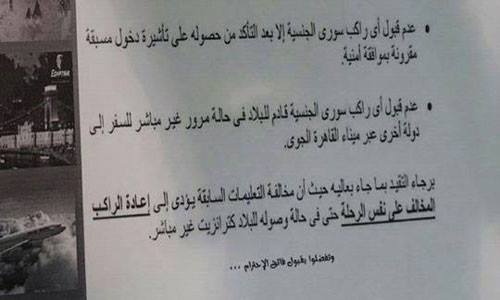 عدم قبول أى راكب سورى الجنسية إلا بعد التأكد من حصوله على تأشيرة دخول مسبقة
مقرونة بموافقة أمنية.
عدم قبول أى راكب سورى الجنسية قادم للبلاد فى حالة مرور غير مباشر للسفر إلى
دولة أخرى عبر ميناء القاهرة الجوى.
برجاء التقيد بما جاء بعاليه حيث أن مخالفة التعليمات السابقة يؤدى إلى إعادة الراكب
المخالف على نفس الرحلة حتى فى حالة وصوله للبلاد كترانزيت غير مباشر.
وتفضلوا بقبول فائق الإحترام ...
EGYPTAIR